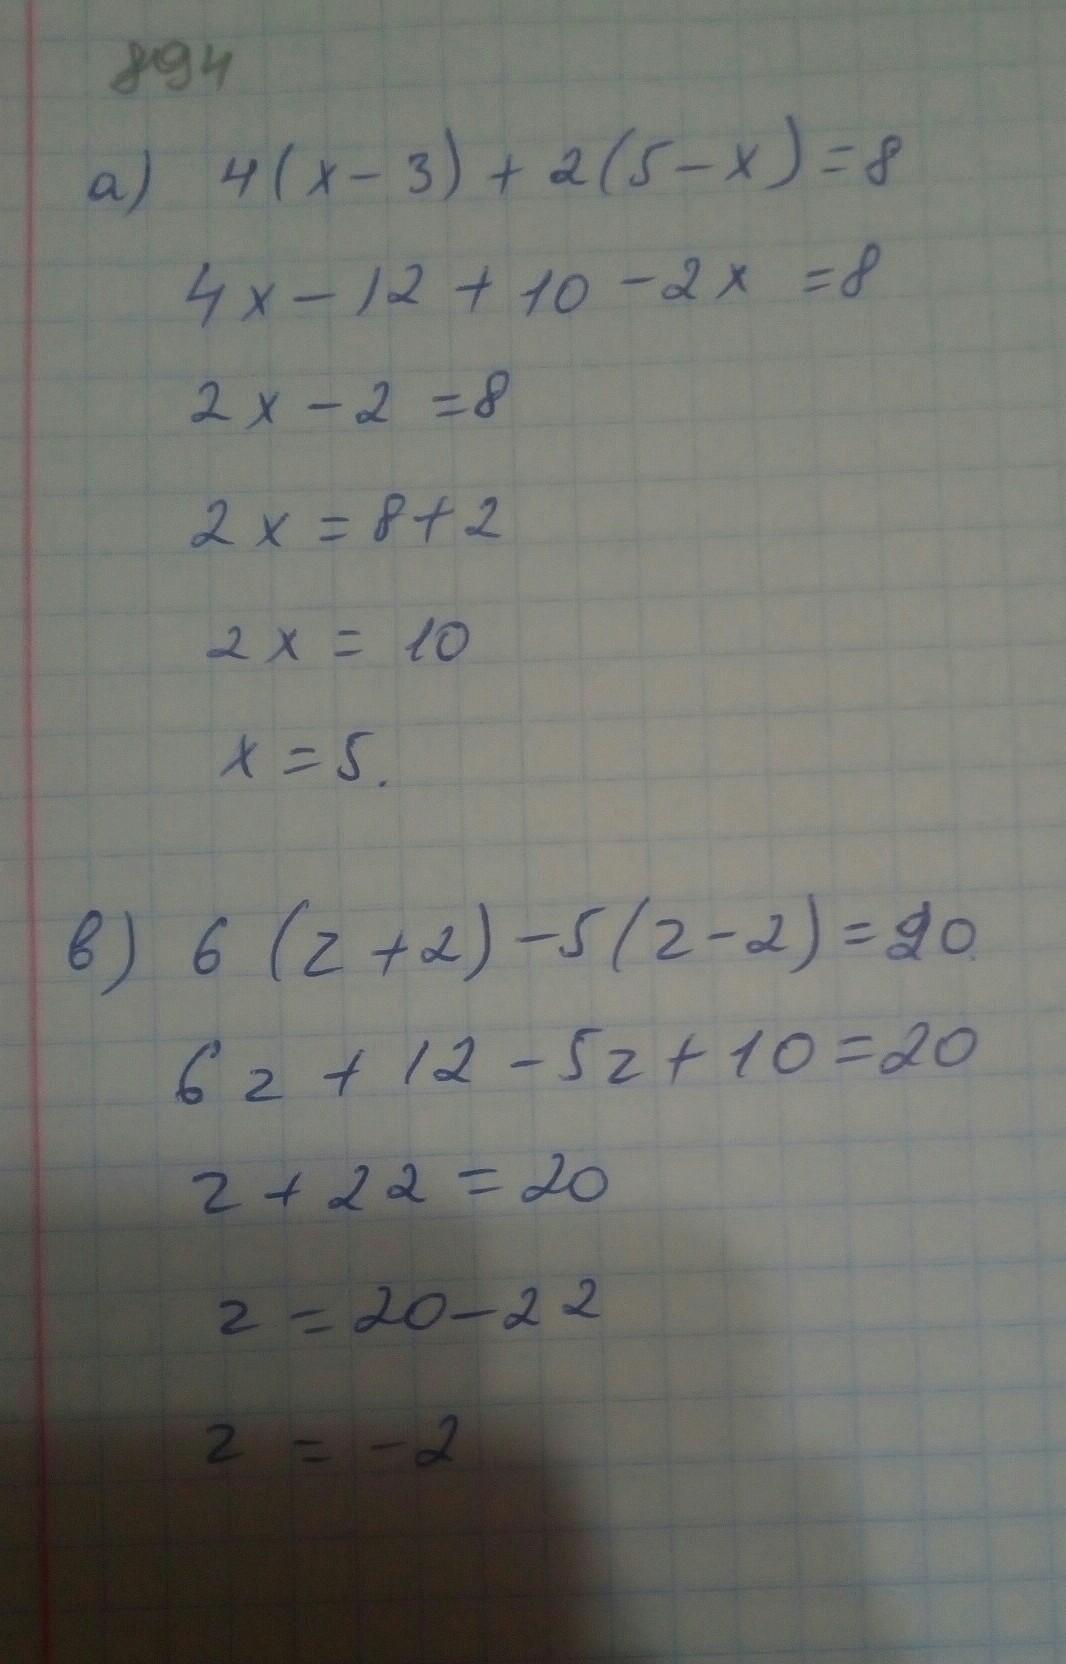 894
а) 4(x-3)+2(5-x)=8
4x-12+10-2x=8
2x-2=8
2x=8+2
2x=10
x=5.
в) 6(z+2)-5(z-2)=20
6z+12-5z+10=20
z+22=20
z=20-22
z=-2